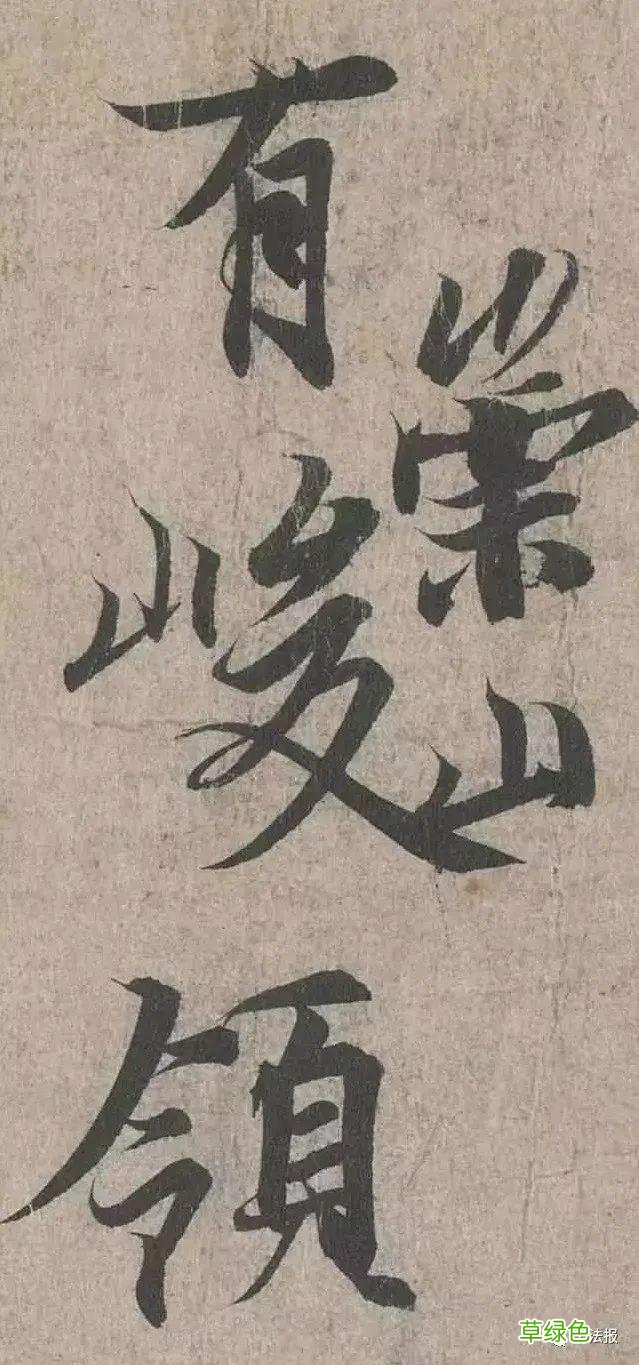 有崇山峻領
草绿色
法报